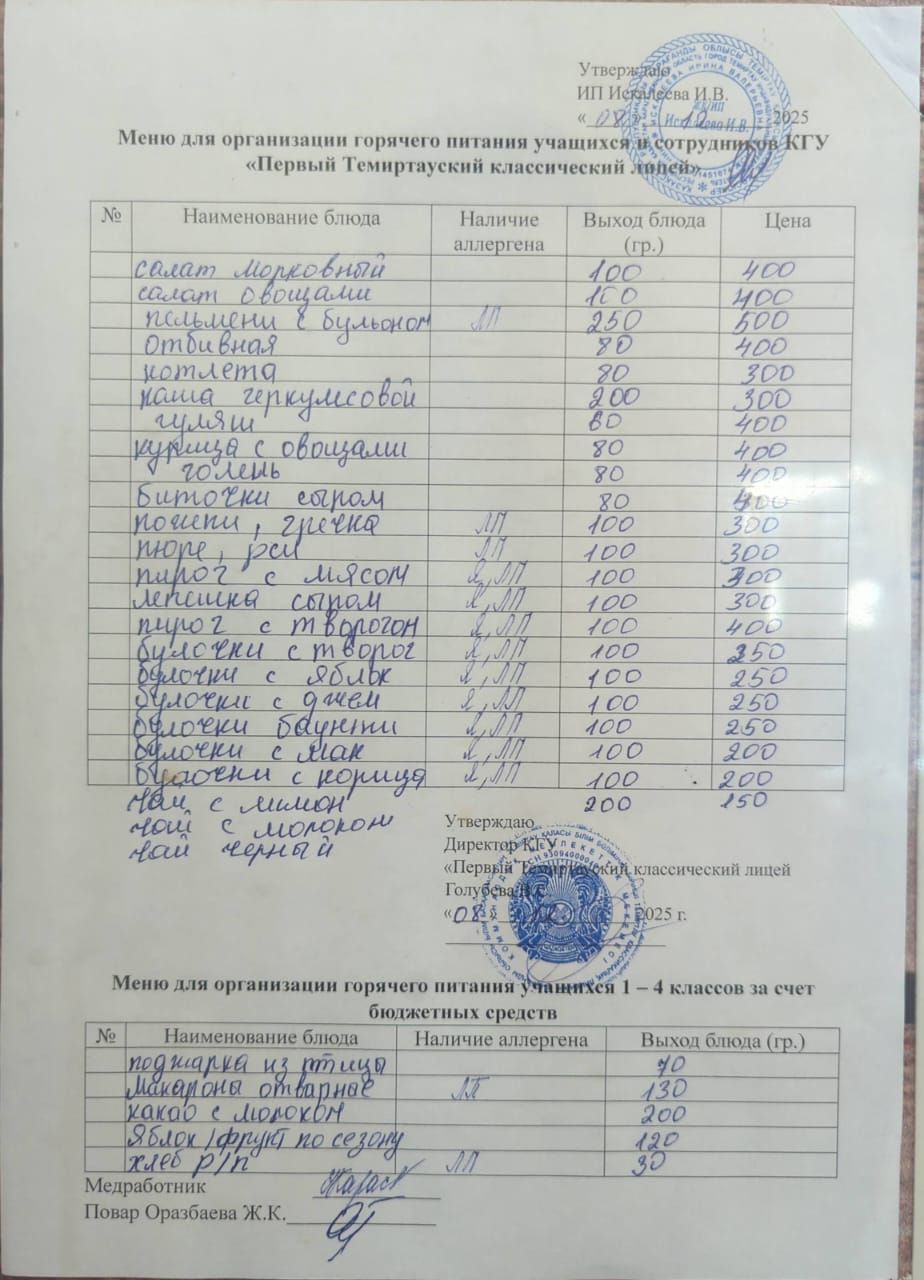 Утверждаю
ИП Искалеева И.В.
«08» 12 2025
Меню для организации горячего питания учащихся и сотрудников КГУ
«Первый Темиртауский классический лицей»
№ Наименование блюда Наличие аллергена Выход блюда (гр.) Цена
салат морковный 100 400
салат овощами 100 400
пельмени с бульоном ЛП 250 500
отбивная 80 400
котлета 80 300
каша геркулесовой 200 300
гуляш 80 400
курица с овощами 80 400
голень 80 400
биточки сыром 80 400
рожки, гречка ЛП 100 300
пюре, рис ЛП 100 300
пирог с мясом Я, ЛП 100 400
лепешка сыром Я, ЛП 100 300
пирог с творогом Я, ЛП 100 400
булочки с творог Я, ЛП 100 250
булочки с яблок Я, ЛП 100 250
булочки с джем Я, ЛП 100 250
булочки баунти Я, ЛП 100 250
булочки с мак Я, ЛП 100 200
булочки с корица Я, ЛП 100 200
чай с лимон 200 150
чай с молоком
чай черный
Утверждаю
Директор КГУ
«Первый Темиртауский классический лицей
Голубева В.С.
«08» 12 2025 г.
Меню для организации горячего питания учащихся 1 – 4 классов за счет
бюджетных средств
№ Наименование блюда Наличие аллергена Выход блюда (гр.)
поджарка из птицы 70
макароны отварные ЛП 130
какао с молоком 200
Яблок/фрукт по сезону 120
хлеб р/п ЛП 30
Медработник
Повар Оразбаева Ж.К.